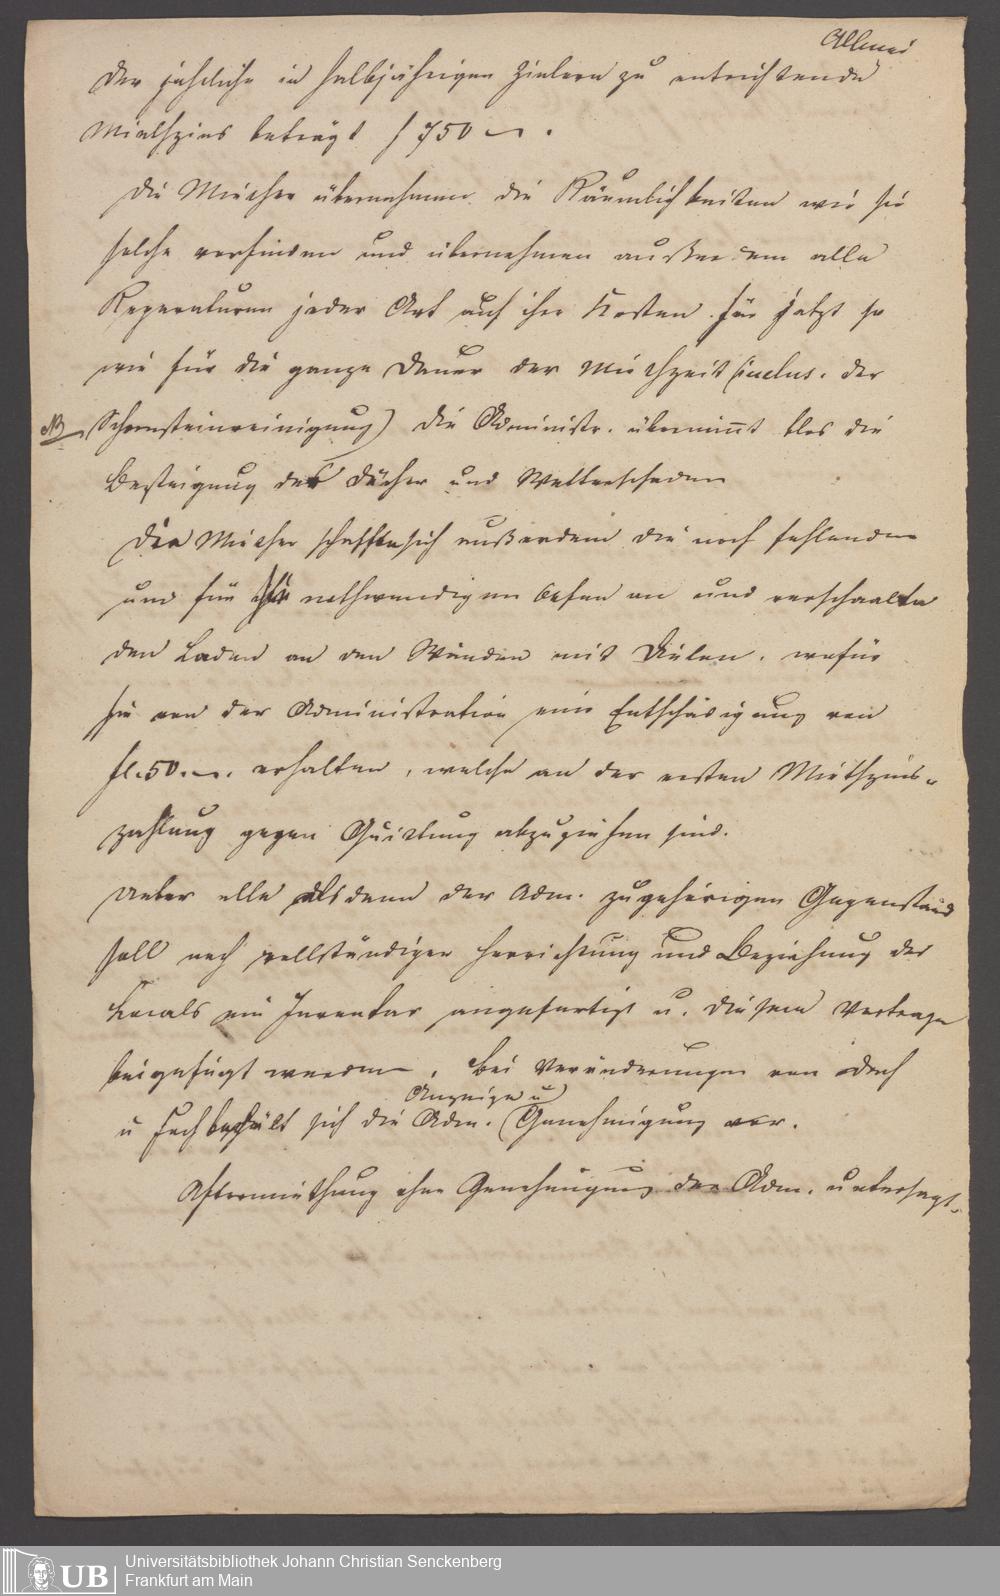 Allmei
Der jährliche in halbjährigen Zielern zu entrichtende
Miethzins beträgt f 750 —.
Die Miether übernehmen die Räumlichkeiten wie sie
solche vorfinden und übernehmen außerdem alle
Reparaturen jeder Art auf ihre Kosten für jetzt so
wie für die ganze Dauer der Miethzeit (inclus. der
NB Schornsteinreinigung) Die Administr. übernimmt blos die
Besteigung der Dächer und Wetterschaden
Die Miether schaffen sich außerdem die noch fehlenden
und für sie nothwendigen Oefen an und verschaalen
den Laden an den Wänden mit Dielen. wofür
sie von der Administration eine Entschädigung von
fl. 50. —. erhalten, welche an der ersten Miethzins-
zahlung gegen Quittung abzuziehen sind.
Ueber alle alsdann der Adm. zugehörigen Gegenstände
soll nach vollständiger Herrichtung und Beziehung des
Locals ein Inventar angefertigt u. diesem Vertrage
beigefügt werden. Bei Veränderungen von Dach
Anzeige u
u Fach behält sich die Adm. (Genehmigung vor.
Aftermiethung ohne Genehmigung der Adm. untersagt.
Universitätsbibliothek Johann Christian Senckenberg
Frankfurt am Main
UB